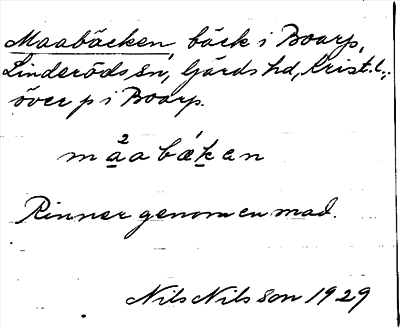 Maabäcken, bäck i Boarp,
Linderöds sn, Gärds hd, Krist. l.;
över p i Boarp.
m a²a b æ´k e n
Rinner genom en mad.
Nils Nilsson 1929